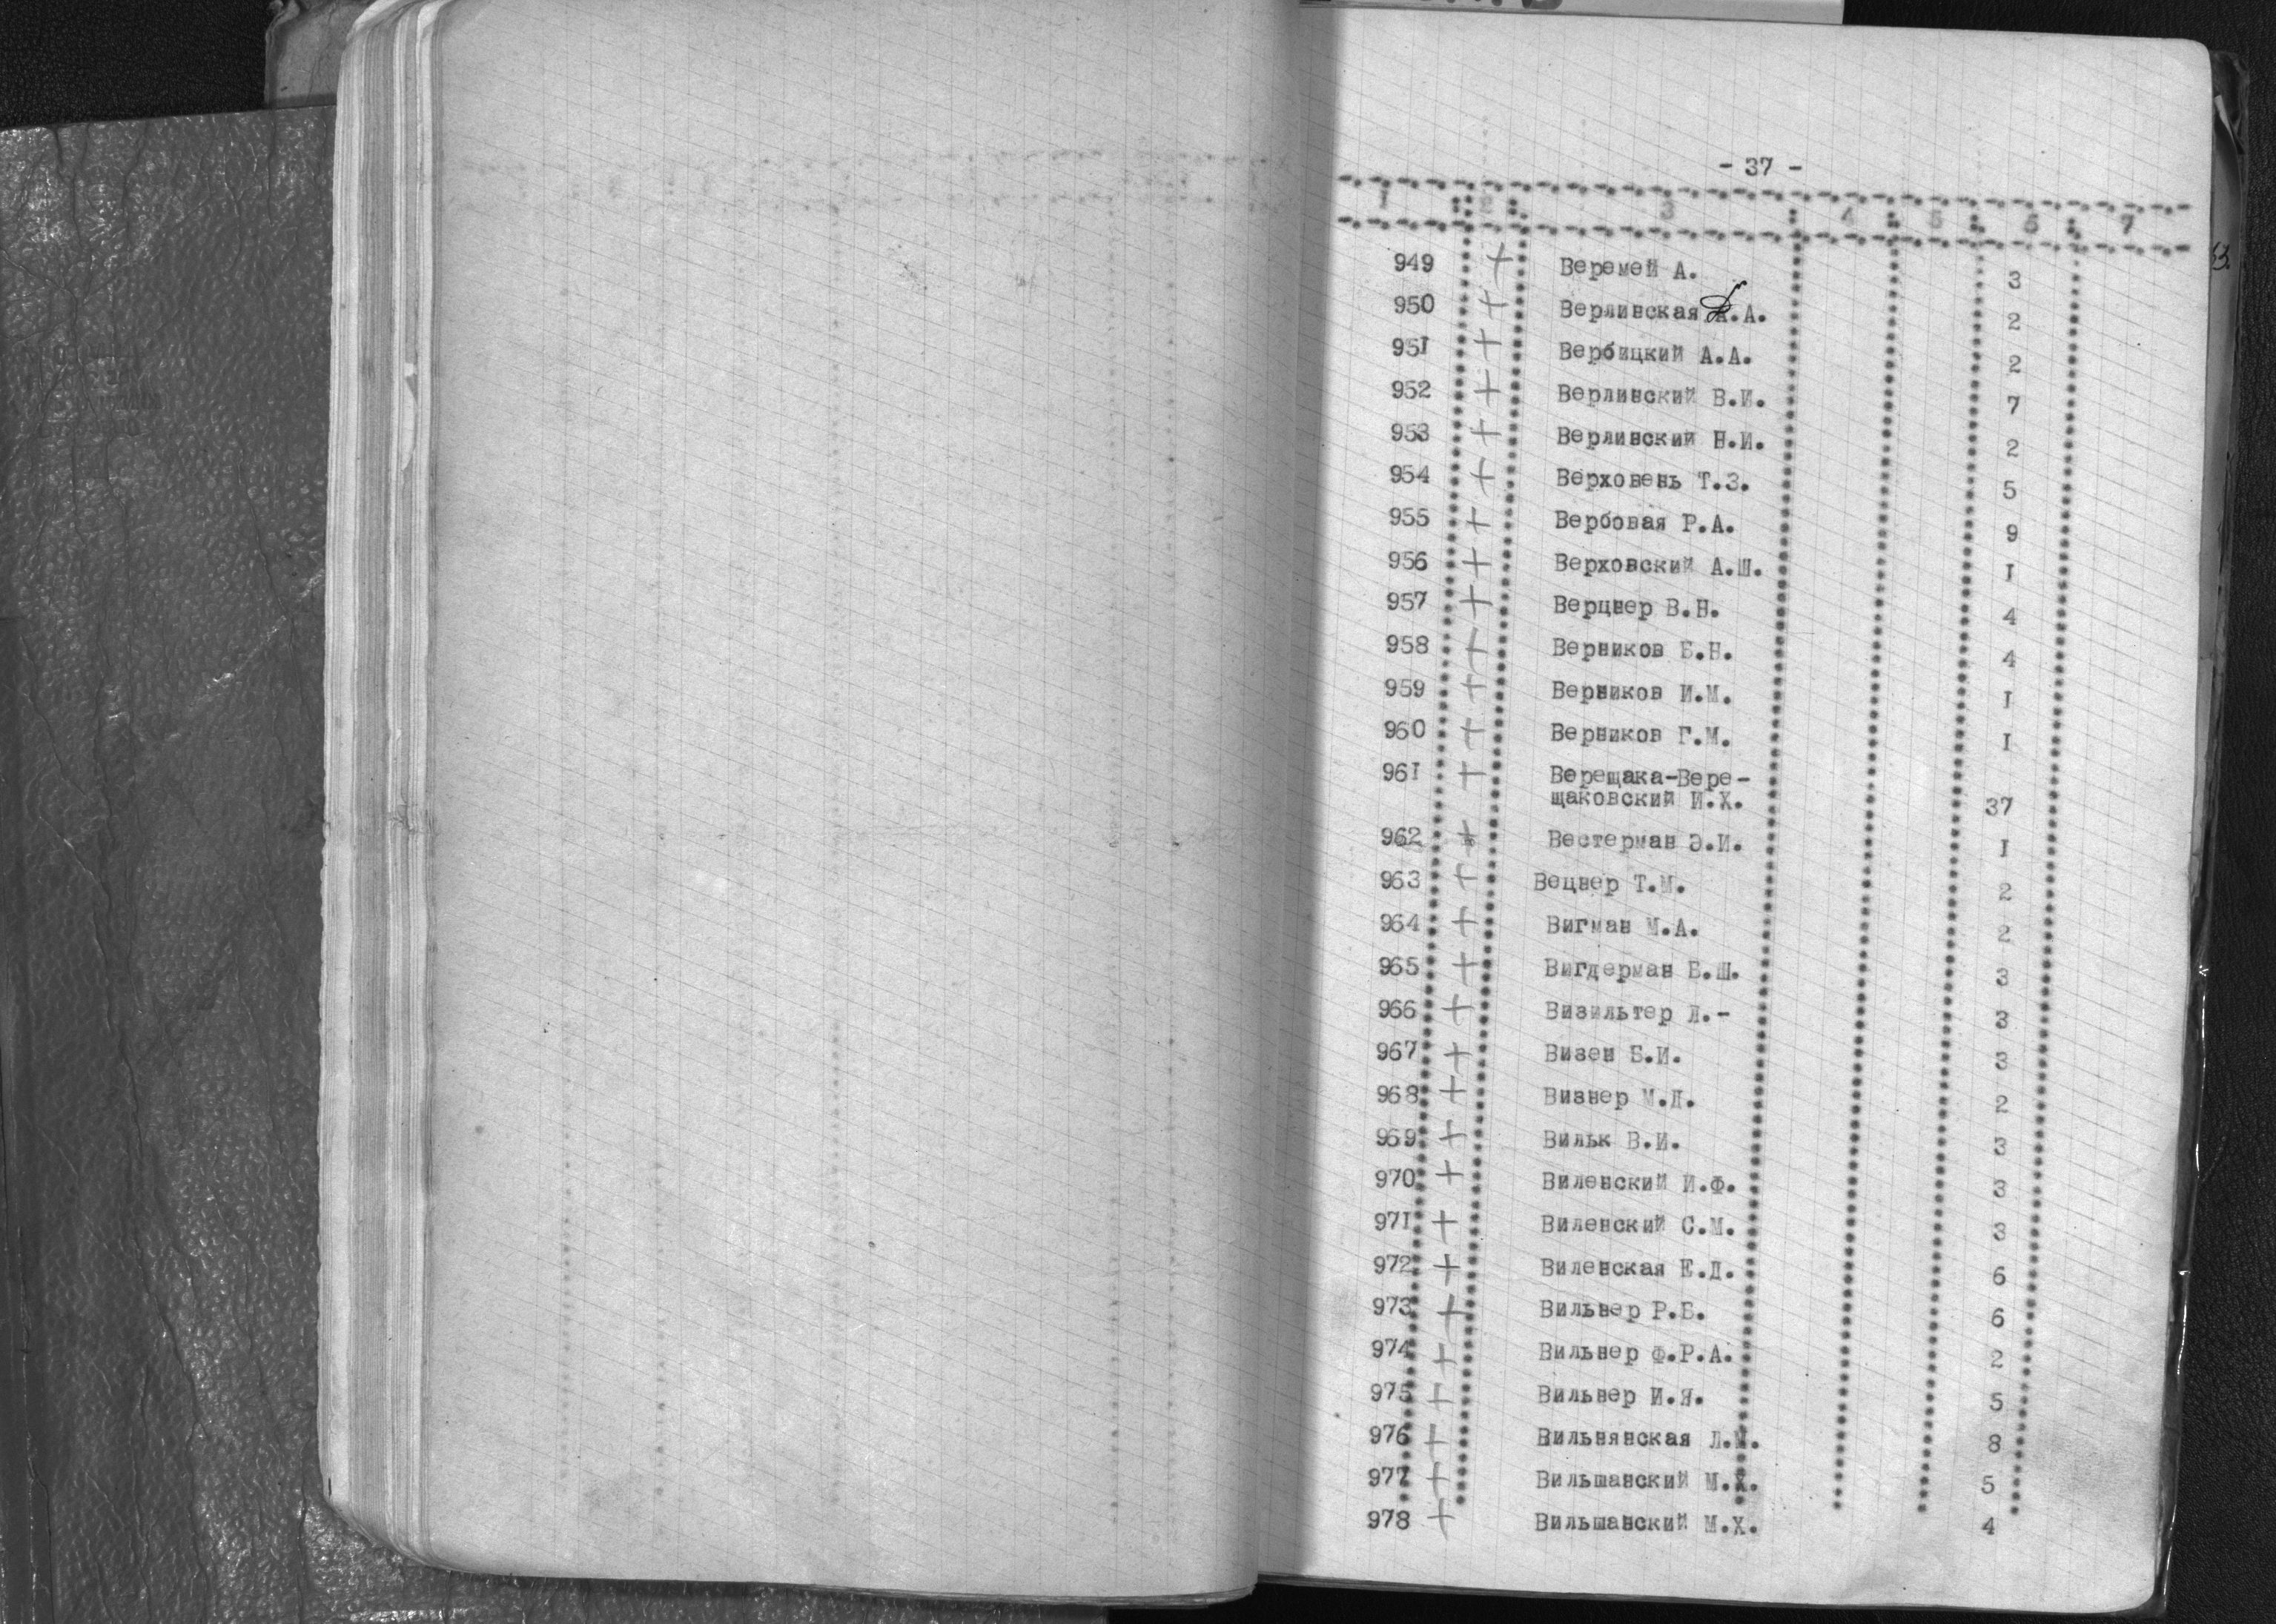 - 37 -
1 2 3 4 5 6 7
949 + Веремей А. 3
950 + Верлинская .А. 2
951 + Вербицкий А.А. 2
952 + Верлинский В.И. 7
953 + Верлинский Н.И. 2
954 + Верховень Т.З. 5
955 + Вербовая Р.А. 9
956 + Верховский А.Ш. I
957 + Верцнер В.Н. 4
958 + Верников Б.Н. 4
959 + Верников И.М. I
960 + Верников Г.М. I
961 + Верещака-Вере-
щаковский И.Х. 37
962 + Вестерман Э.И. I
963 + Вецнер Т.М. 2
964 + Вигман М.А. 2
965 + Вигдерман Б.Ш. 3
966 + Визильтер Л.- 3
967 + Визен Б.И. 3
968 + Визнер М.Д. 2
969 + Вильк В.И. 3
970 + Виленский И.Ф. 3
971 + Виленский С.М. 3
972 + Виленская Е.Д. 6
973 + Вильнер Р.Б. 6
974 + Вильнер Ф.Р.А. 2
975 + Вильнер И.Я. 5
976 + Вильнянская Л.М. 8
977 + Вильшанский М.Х. 5
978 + Вильшанский М.Х. 4